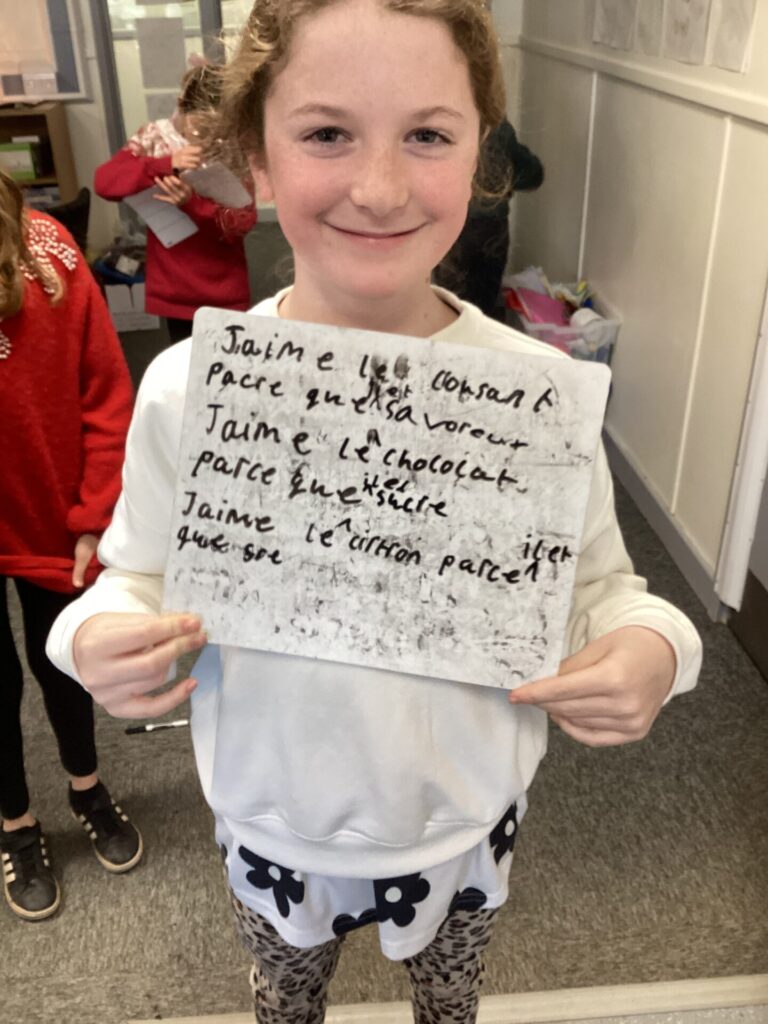 Jaime le corsant
pacre que il et savoreux
Jaime le chococat.
parce que il et sucre
Jaime le cirtron parce il et
que